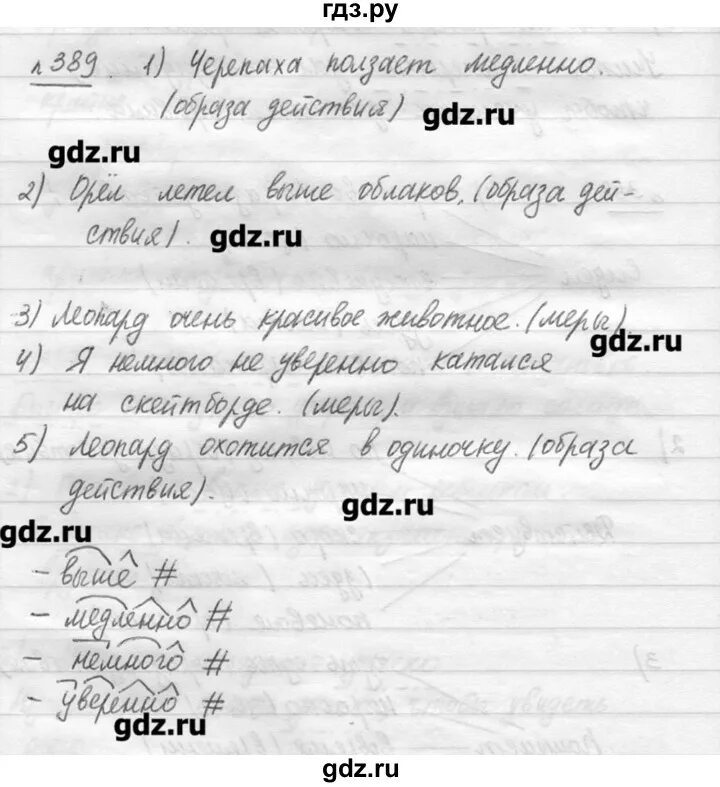 гдз.ру
л 389. 1) Черепаха ползает медленно.
(образа действия) gdz.ru
gdz.ru
2) Орёл летел выше облаков. (образа дей-
ствия). gdz.ru
3) Леопард очень красивое животное. (меры).
gdz.ru
4) Я немного не уверенно катался
на скейтборде. (меры).
5) Леопард охотится в одиночку. (образа
действия). gdz.ru
gdz.ru
- выше #
- медленно #
- немного #
- уверенно #
gdz.ru
gdz.ru